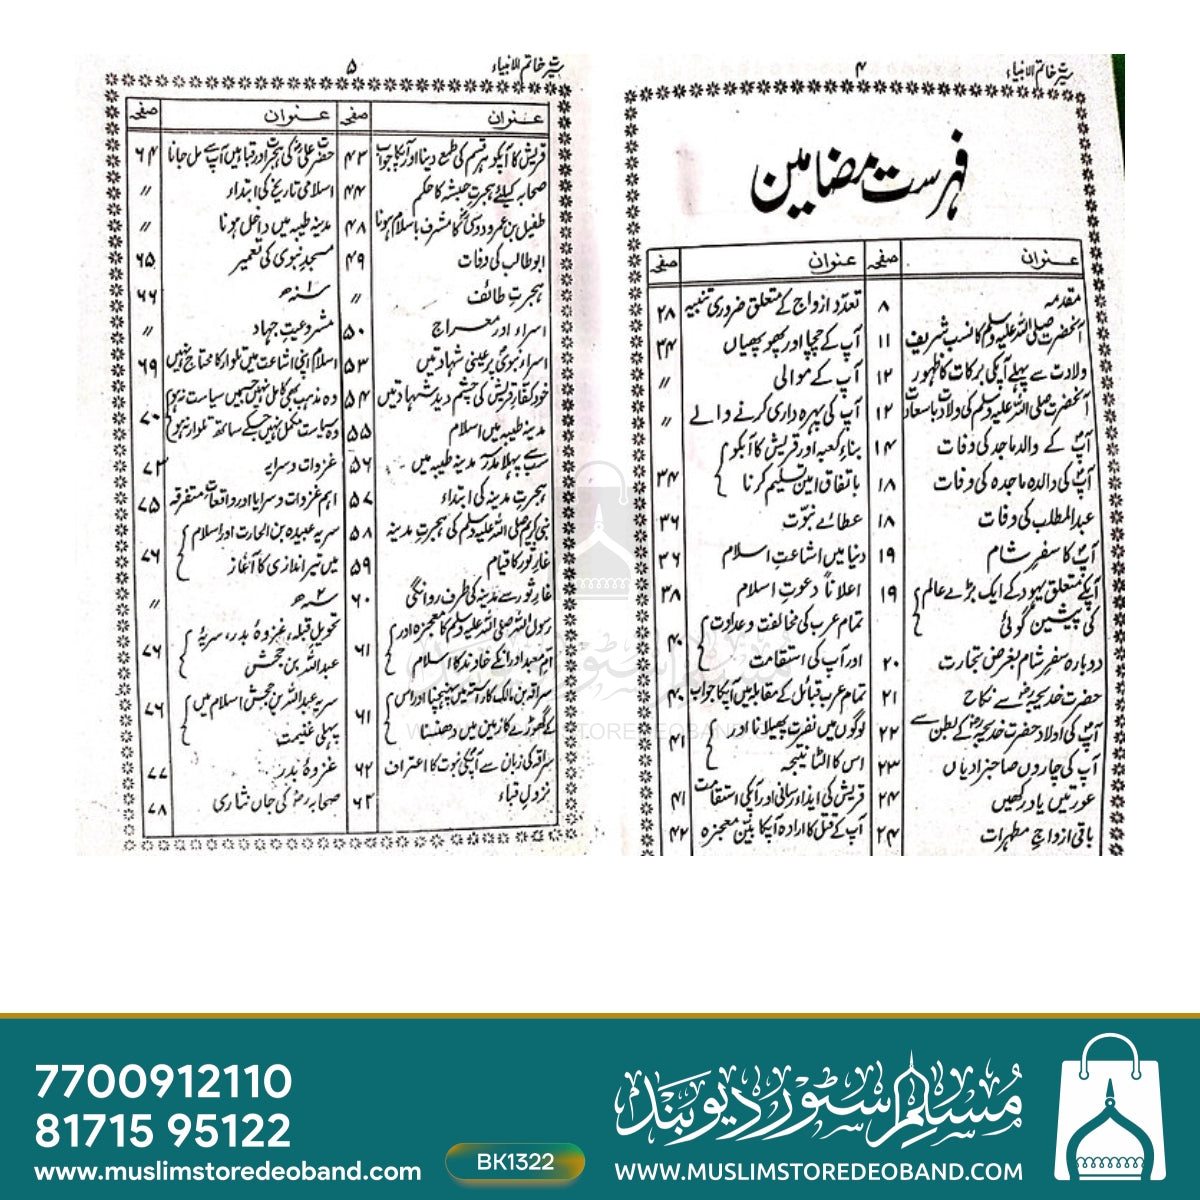 سیرِ خاتم الانبیاء
۴
فہرست مضامین
عنوان صفحہ عنوان صفحہ
مقدمہ ۸
آنحضرت صلی اللہ علیہ وسلم کا نسب شریف ۱۱
ولادت سے پہلے آپکی برکات کا ظہور ۱۲
آنحضرت صلی اللہ علیہ وسلم کی ولادت باسعادت ۱۲
آپؐ کے والد ماجد کی وفات ۱۴
آپؐ کی والدہ ماجدہ کی وفات ۱۸
عبدالمطلب کی وفات ۱۸
آپؐ کا سفرِ شام ۱۹
آپکے متعلق یہود کے ایک بڑے عالم کی پیشین گوئی ۱۹
دوبارہ سفر شام بغرض تجارت ۲۰
حضرت خدیجہؓ سے نکاح ۲۱
آپؐ کی اولاد حضرت خدیجہؓ کے بطن سے ۲۲
آپ کی چاروں صاحبزادیاں ۲۳
عورتیں یاد رکھیں ۲۴
باقی ازواجِ مطہرات ۲۴
تعدد ازواج کے متعلق ضروری تنبیہ ۲۸
آپ کے چچا اور پھوپھیاں ۳۴
آپ کے موالی 〃
آپ کی پہرہ داری کرنے والے 〃
بناءِ کعبہ اور قریش کا آپکو باتفاق امین تسلیم کرنا ۳۴
عطائے نبوّت ۳۶
دنیا میں اشاعتِ اسلام ۳۶
اعلاناً دعوتِ اسلام ۳۸
تمام عرب کی مخالفت و عداوت اور آپ کی استقامت ۴۰
تمام عرب قبائل کے مقابلہ میں آپکا جواب ۴۰
لوگوں میں نفرت پھیلانا اور اس کا الٹا نتیجہ ۴۱
قریش کی ایذاء رسانی اور آپکی استقامت ۴۱
آپ کے قتل کا ارادہ آپکا بیّن معجزہ ۴۲
سیرِ خاتم الانبیاء
۵
عنوان صفحہ عنوان صفحہ
قریش کا آپکو ہر قسم کی طمع دینا اور آپکا جواب ۴۳
صحابہ کیلئے ہجرت حبشہ کا حکم ۴۴
طفیل بن عمرو دوسی کا مشرف باسلام ہونا ۴۸
ابو طالب کی وفات ۴۹
ہجرتِ طائف 〃
اسراء اور معراج ۵۰
اسراءِ نبوی پر عینی شہادتیں ۵۳
خود کفارِ قریش کی چشم دید شہادتیں ۵۴
مدینہ طیبہ میں اسلام ۵۵
سب سے پہلا مدرسہ مدینہ طیبہ میں ۵۶
ہجرتِ مدینہ کی ابتداء ۵۷
نبی کریم صلی اللہ علیہ وسلم کی ہجرتِ مدینہ ۵۸
غارِ ثور کا قیام ۵۹
غارِ ثور سے مدینہ کی طرف روانگی ۶۰
رسول اللہ صلی اللہ علیہ وسلم کا معجزہ اور ام معبد اور انکے خاوند کا اسلام ۶۱
سراقہ بن مالک کا راستہ میں پہنچنا اور اس کے گھوڑے کا زمین میں دھنسنا ۶۱
سراقہ کی زبان سے آپؐ کی نبوت کا اعتراف ۶۲
نزول قباء ۶۳
حضرت علیؓ کی ہجرت اور قبا میں آپؐ سے مل جانا ۶۴
اسلامی تاریخ کی ابتداء 〃
مدینہ طیبہ میں داخل ہونا 〃
مسجد نبوی کی تعمیر ۶۵
۱ سنہ ھ ۶۶
مشروعیتِ جہاد 〃
اسلام اپنی اشاعت میں تلوار کا محتاج نہیں ۶۹
وہ مذہب بھی کامل نہیں جسمیں سیاست نہ ہو وہ سیاست مکمل نہیں جسکے ساتھ تلوار نہ ہو ۷۰
غزوات و سرایہ ۷۳
اہم غزوات و سرایا اور واقعات متفرقہ ۷۵
سریہ عبیدہ بن الحارث اور اسلام میں تیر اندازی کا آغاز ۷۶
۲ سنہ ھ 〃
تحویل قبلہ، غزوۂ بدر، سریۂ عبداللہ بن جحش ۷۶
سریہ عبداللہ بن جحش اسلام میں پہلی غنیمت ۷۶
غزوۂ بدر ۷۷
صحابہؓ کی جاں نثاری ۷۸
مسلم سٹور دیوبند
WWW.MUSLIMSTOREDEOBAND.COM
7700912110
81715 95122
www.muslimstoredeoband.com
BK1322
مسلم سٹور دیوبند
WWW.MUSLIMSTOREDEOBAND.COM